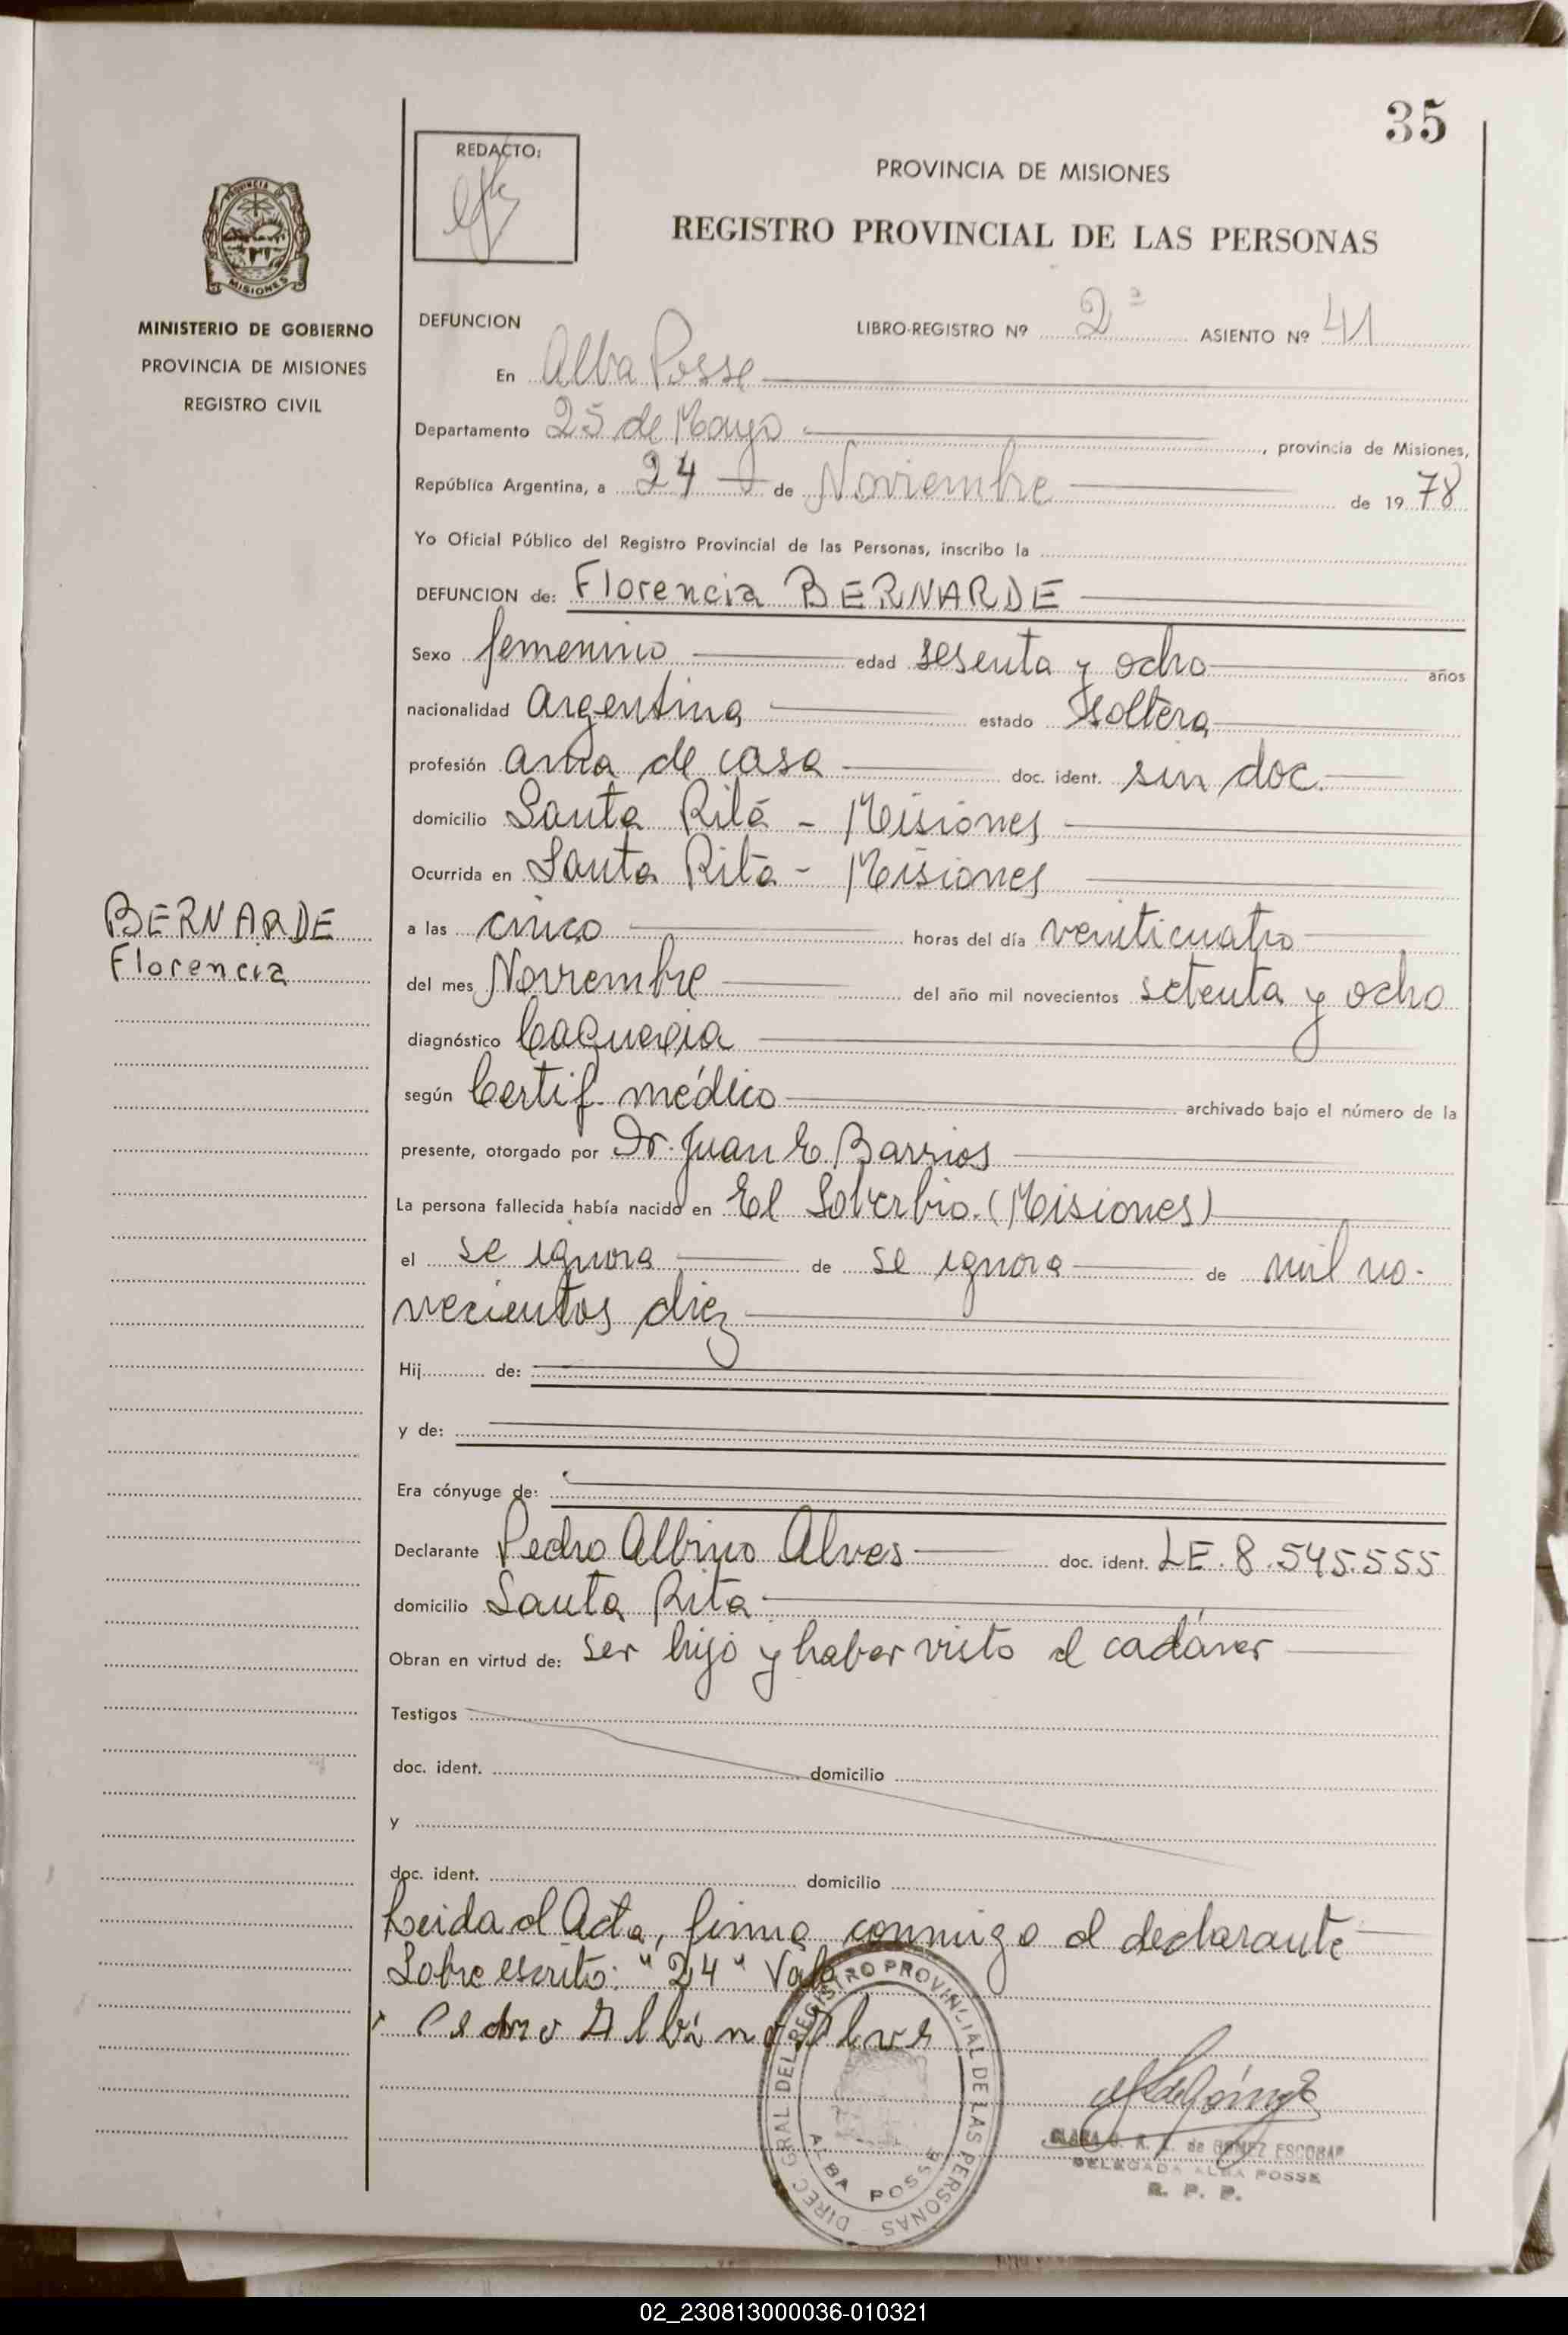 35
REDACTO:
PROVINCIA DE MISIONES
REGISTRO PROVINCIAL DE LAS PERSONAS
PROVINCIA DE
MISIONES
MINISTERIO DE GOBIERNO
PROVINCIA DE MISIONES
REGISTRO CIVIL
DEFUNCION LIBRO-REGISTRO Nº 2ª ASIENTO Nº 41
En Alba Posse
Departamento 25 de Mayo, provincia de Misiones,
República Argentina, a 24 de Noviembre de 1978
Yo Oficial Público del Registro Provincial de las Personas, inscribo la
DEFUNCION de: Florencia BERNARDE
Sexo femenino edad sesenta y ocho años
nacionalidad argentina estado soltera
profesión ama de casa doc. ident. sin doc.
domicilio Santa Rita - Misiones
Ocurrida en Santa Rita - Misiones
BERNARDE
Florencia
a las cinco horas del día veinticuatro
del mes Noviembre del año mil novecientos setenta y ocho
diagnóstico Caquexia
según Certif. médico archivado bajo el número de la
presente, otorgado por Dr. Juan E. Barrios
La persona fallecida había nacido en El Soberbio. (Misiones)
el se ignora de se ignora de mil no-
vecientos diez
Hij de:
y de:
Era cónyuge de:
Declarante Pedro Albino Alves doc. ident. LE. 8.545.555
domicilio Santa Rita
Obran en virtud de: ser hijo y haber visto el cadáver
Testigos
doc. ident. domicilio
y
doc. ident. domicilio
Leida el Acta, firma conmigo el declarante
Sobre escrito: "24" Vale
Pedro Albino Alves
DIREC. GRAL DEL REGISTRO PROVINCIAL DE LAS PERSONAS
ALBA POSSE
de GOMEZ ESCOBAR
DELEGADA ALBA POSSE
R. P. P.
02_230813000036-010321